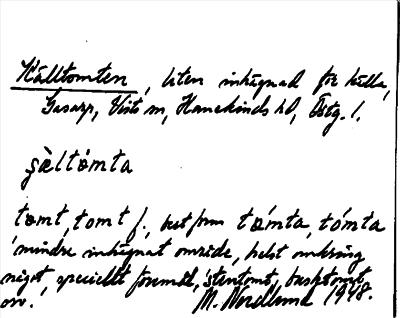 Källtomten, liten inhägnad för källa,
Gasarp, Vists sn, Hanekinds hd, Östg. l.
şàltómta
tomt, tomt f., best form tómta, tómta
'mindre inhägnat område, helst omkring
något, speciellt föremål,' stentomt, basktomt,
osv. M. Nordlund 1948.